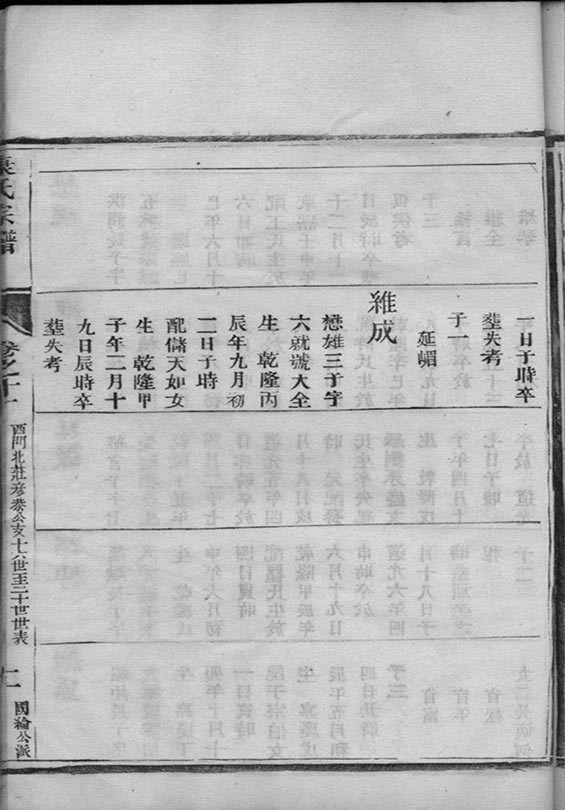 一日子時卒
塟失考
子一
延嵋
維成
懋雄三子字
六就號大全
生 乾隆丙
辰年九月初
二日子時
配儲天如女
生 乾隆甲
子年二月十
九日辰時卒
塟失考
氏宗譜
卷之十一
西門北莊彥泰公支十六世至二十世世表
十一
國綸公派